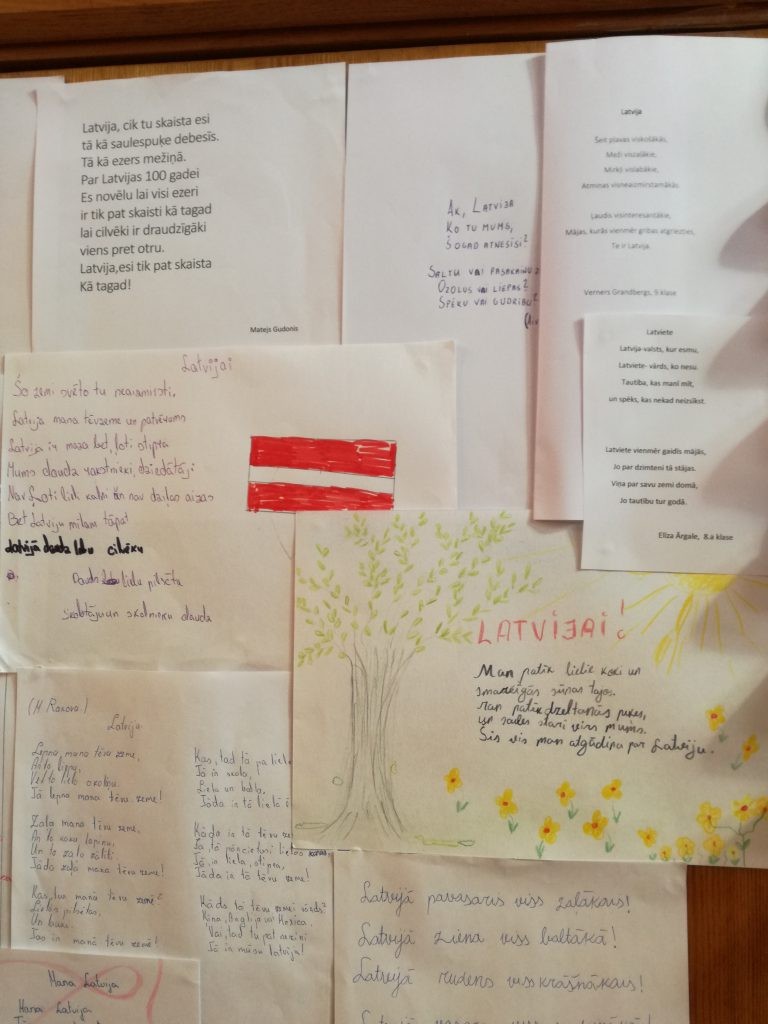 Latvija, cik tu skaista esi
tā kā saulespuķe debesīs.
Tā kā ezers mežiņā.
Par Latvijas 100 gadei
Es novēlu lai visi ezeri
ir tik pat skaisti kā tagad
lai cilvēki ir draudzīgāki
viens pret otru.
Latvija,esi tik pat skaista
Kā tagad!
Matejs Gudonis
Ak, Latvija
Ko tu mums,
Šogad atnesīsi?
Saltu vai pasakainu?
Ozolus vai liepas?
Spēku vai gudrību?
Latvija
Šeit pļavas viskošākās,
Meži viszaļākie,
Mirkļi vislabākie,
Atmiņas visneaizmirstamākās.
Ļaudis visinteresantākie,
Mājas, kurās vienmēr gribas atgriezties,
Te ir Latvija.
Verners Grandbergs, 9.klase
Latviete
Latvija-valsts, kur esmu,
Latviete- vārds, ko nesu.
Tautība, kas manī mīt,
un spēks, kas nekad neizsīkst.
Latviete vienmēr gaidīs mājās,
Jo par dzimteni tā stājas.
Viņa par savu zemi domā,
Jo tautību tur godā.
Elīza Ārgale, 8.a klase
Latvijai
Šo zemi svēto tu neaizmirsti.
Latvija mana tēvzeme un patvērums
Latvija ir maza bet, ļoti stipra
Mums daudz rakstnieki, dziedātāji
Nav ļoti lieli kalni un nav dziļas aizas
Bet Latviju mīlam tāpat
Latvijā daudz labu cilvēku
Daudz lielu pilsētu
skolotāju un skolnieku daudz
LATVIJAI!
Man patīk lielie koki un
smaržīgās sūnas tajos.
Man patīk dzeltanās puķes,
un saules stari virs mums.
Šis vis man atgādina par Latviju.
(M. Raxova.)
Latvija
Lepna, mana tēvu zeme,
Ar to liepu,
Vēl to lielo ozoliņu.
Tā lepna mana tēvu zeme!
Zaļa mana tēvu zeme,
Ar to koku lapiņu,
Un to zaļo zālīti
Tāda zaļa mana tēvu zeme!
Kas, tur manā tēvu zemē?
Lielas pilsētas,
Un lauki.
Tas ir manā tēvu zemē!
Kas, tad tā pa liela
Tā ir skola,
Liela un balta,
Tāda ir tā lielā
Kāda ir tā tēvu zeme
Ja, tā pārcietusi lielos karus
Tā, ir liela, stipra,
Tāda ir tā tēvu zeme!
Kāds tā tēvu zemei vārds?
Ķīna, Anglija vai Mexica.
Vai, tad tu pat nezini
Tā ir mūsu Latvija!
Mana Latvija
Mana Latvija
Latvijā pavasaris viss zaļākais!
Latvijā ziema viss baltākā!
Latvijā rudens viss krāšņākais!